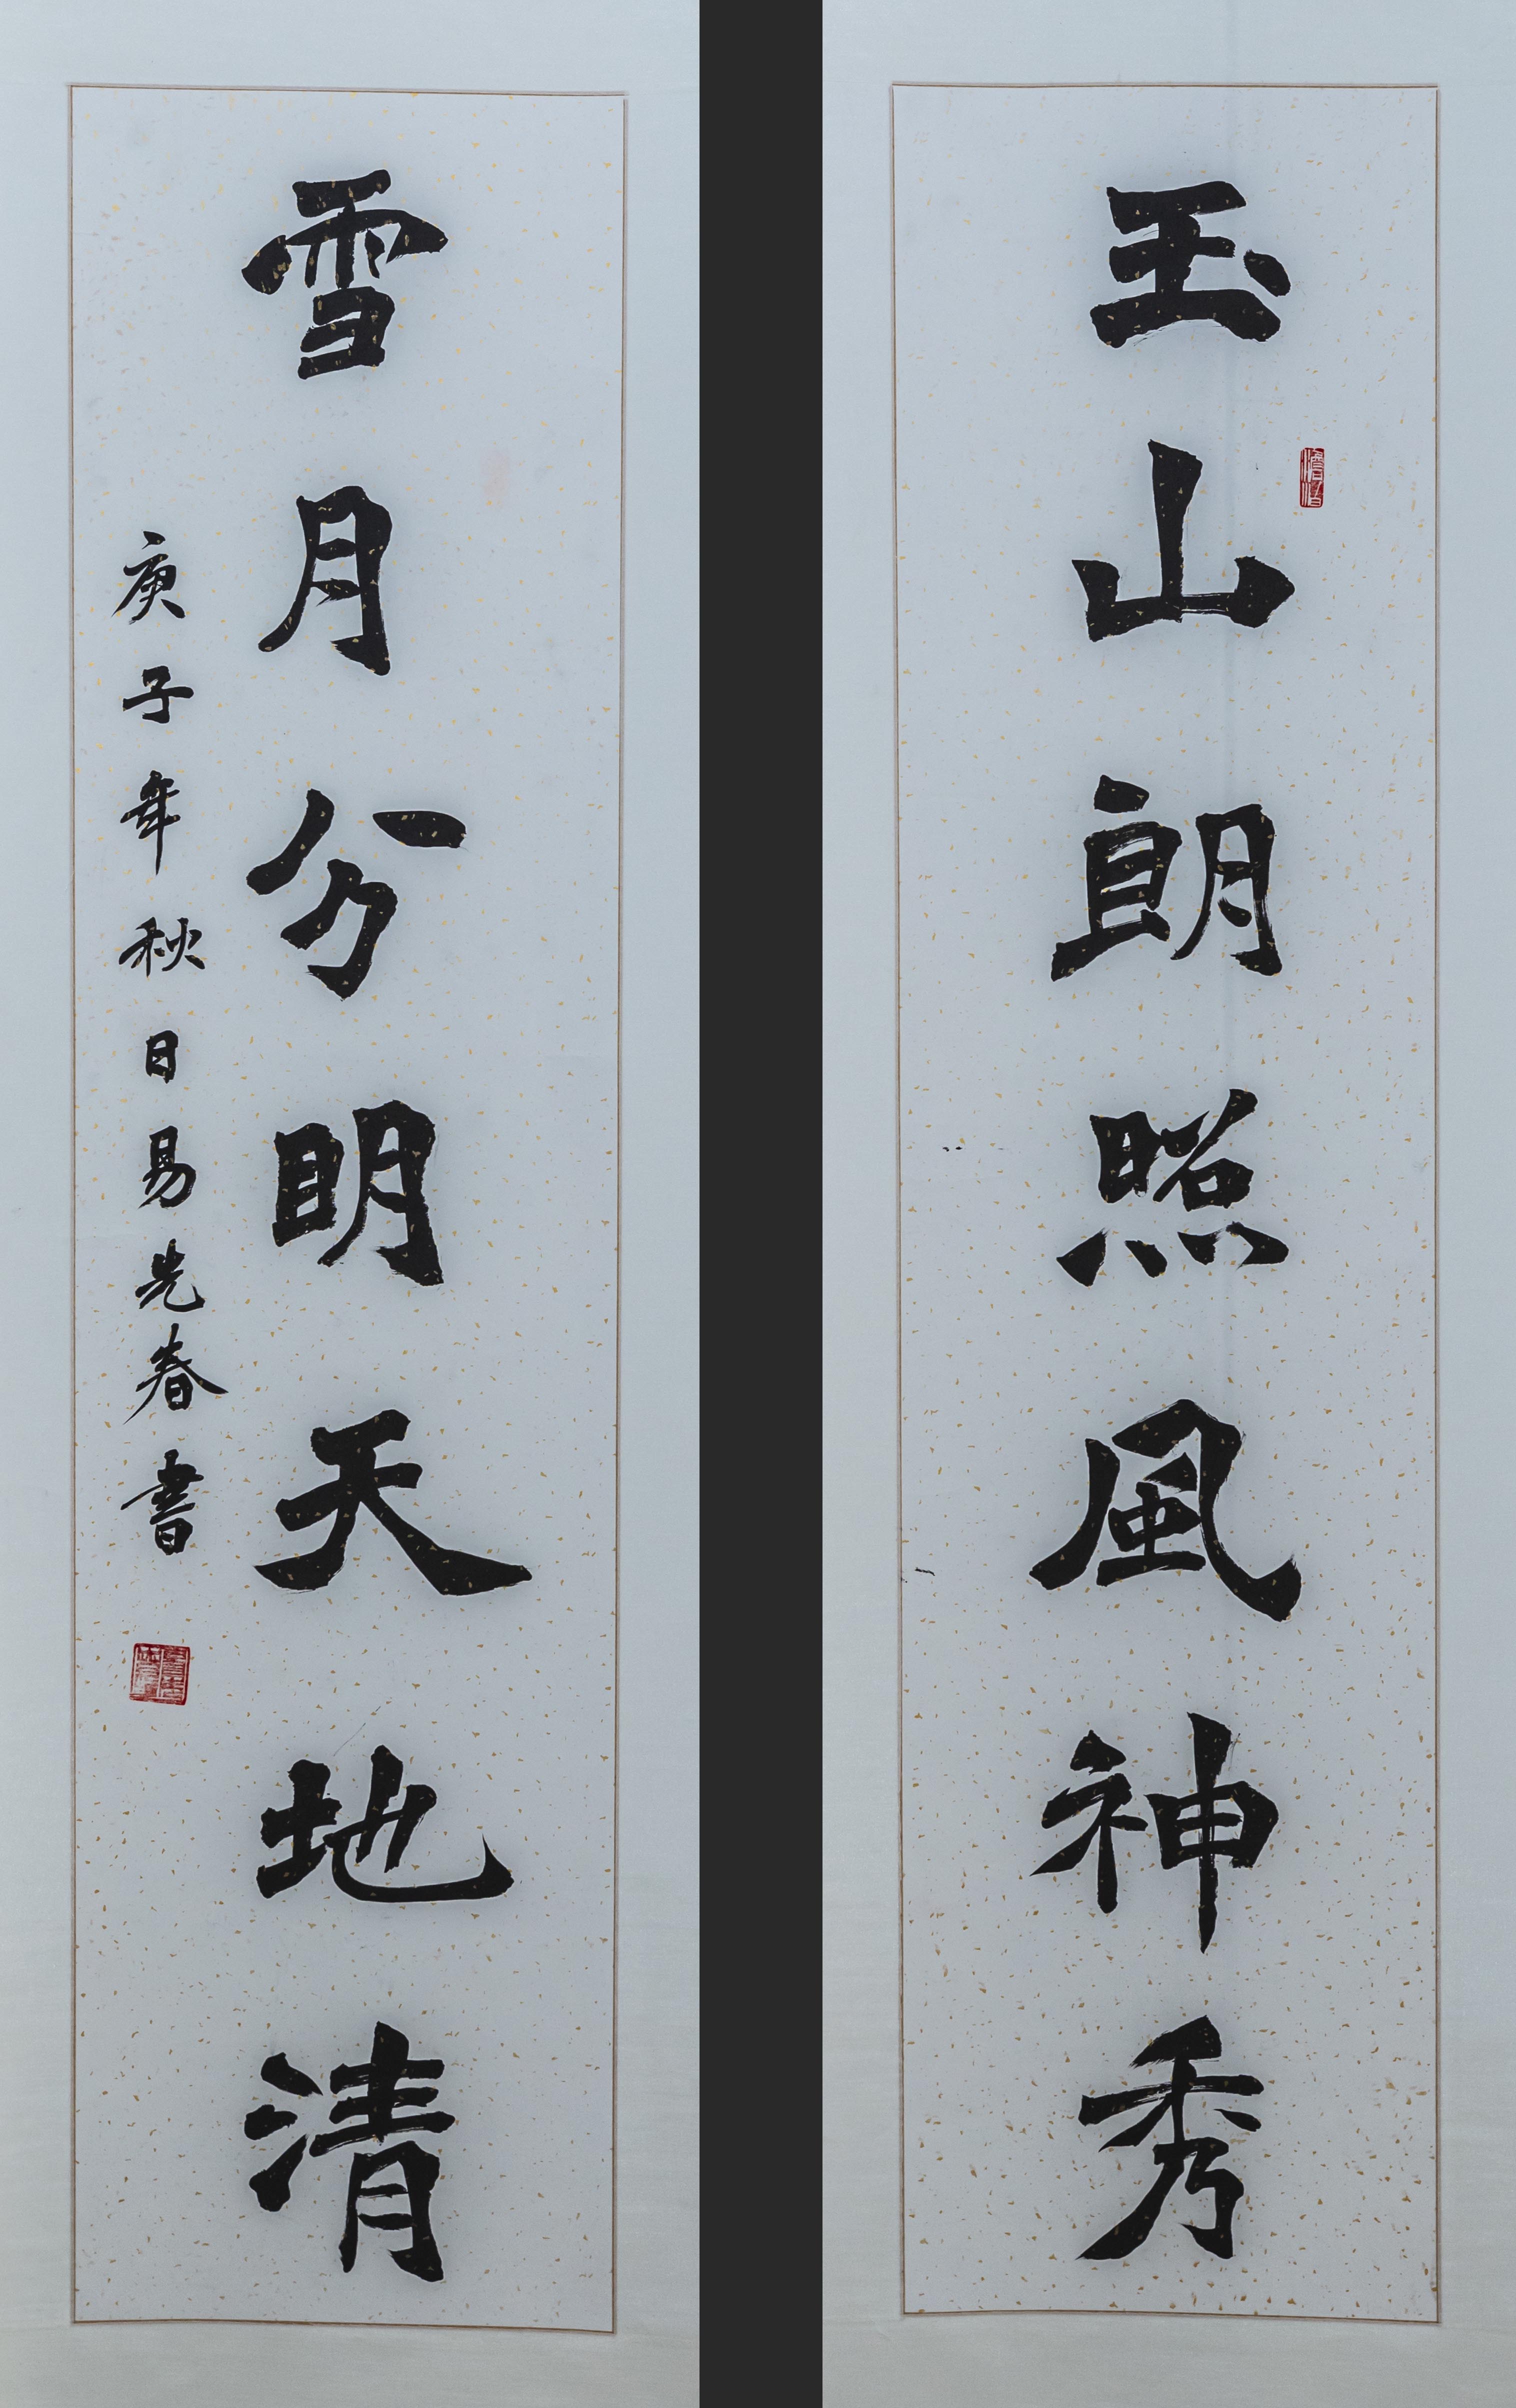 玉山朗照風神秀
雪月分明天地清
庚子年秋日易先春書